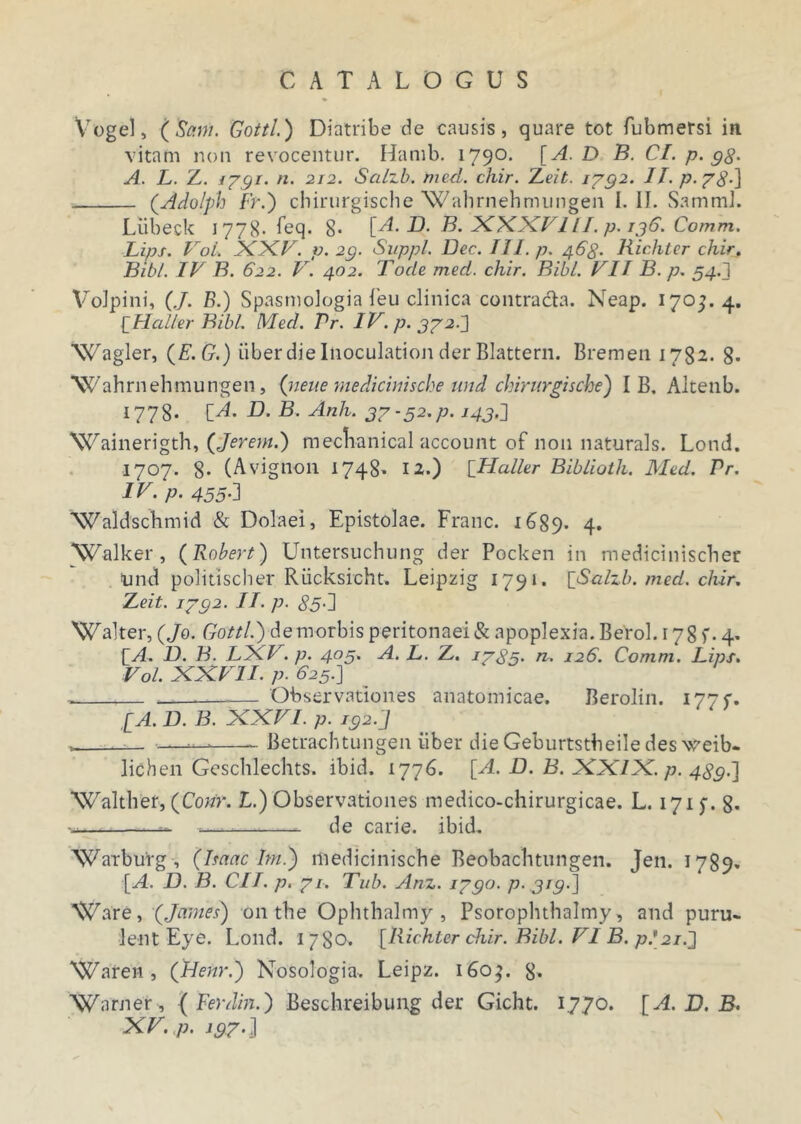 CATALOGUS
Vogel, (Sam. Gottl.) Diatribe de causis, quare tot submersi in
vitam non revocentur. Hamb. 1790. [A. D. B. CI. p. 98.
A. L. Z. 1791. n. 212. Salzb. med. chir. Zeit. 1792. II. p. 78.]
——— (Adolph Fr.) chirurgische Wahrnehmungen I. II. Samml.
Lübeck 1778. seq. 8. [A. D. B. XXXVIII. p. 136. Comm.
Lips. Vol. XXV. p. 29. Suppl. Dec. III. p. 468. Richter chir.
Bibl. IV B. 622. V. 402. Tode med. chir. Bibl. VII B. p. 54.]
Volpini, (J. B.) Spasmologia seu clinica contracta. Neap. 1703. 4.
[Haller Bibl. Med. Pr. IV. p. 372.]
Wagler, (E. G.) über die Inoculation der Blattern. Bremen 1782. 8.
Wahrnehmungen, (neue medicinische und chirurgische) I B. Altenb.
1778. [A. D. B. Anh. 37-52. p. 143.]
Wainerigth, (Jerem.) mechanical account of non naturals. Lond.
1707. 8. (Avignon 1748. 12.) [Haller Biblioth. Med. Pr.
IV. p. 455.]
Waldschmid & Dolaei, Epistolae. Franc. 1689. 4.
Walker, (Robert) Untersuchung der Pocken in medicinischer
und politischer Rücksicht. Leipzig 1791. [Salzb. med. chir.
Zeit. 1792. II. p. 85.]
Walter, (Jo. Gottl.) de morbis peritonaei & apoplexia. Berol. 1785. 4.
[A. D. B. LXV. p. 405. A. L. Z. 1785. n. 126. Comm. Lips.
Vol. XXVII. p. 625.]
——— ——— Observationes anatomicae. Berolin. 1775.
[A. D. B. XXVI. p. 192.]
——— ——— Betrachtungen über die Geburtstheile des weib-
lichen Geschlechts. ibid. 1776. [A. D. B. XXIX. p. 489.]
Walther, (Conr. L.) Observationes medico-chirurgicae. L. 1715. 8.
——— ——— de carie. ibid.
Warburg, (Isaac Im.) medicinische Beobachtungen. Jen. 1789.
[A. D. B. CII. p. 71. Tub. Anz. 1790. p. 319.]
Ware, (James) on the Ophthalmy, Psorophthalmy, and puru-
lent Eye. Lond. 1780. [Richter chir. Bibl. VI B. p. 21.]
Waren, (Henr.) Nosologia. Leipz. 1603. 8.
Warner, (Ferdin.) Beschreibung der Gicht. 1770. [A. D. B.
XV. p. 197.]